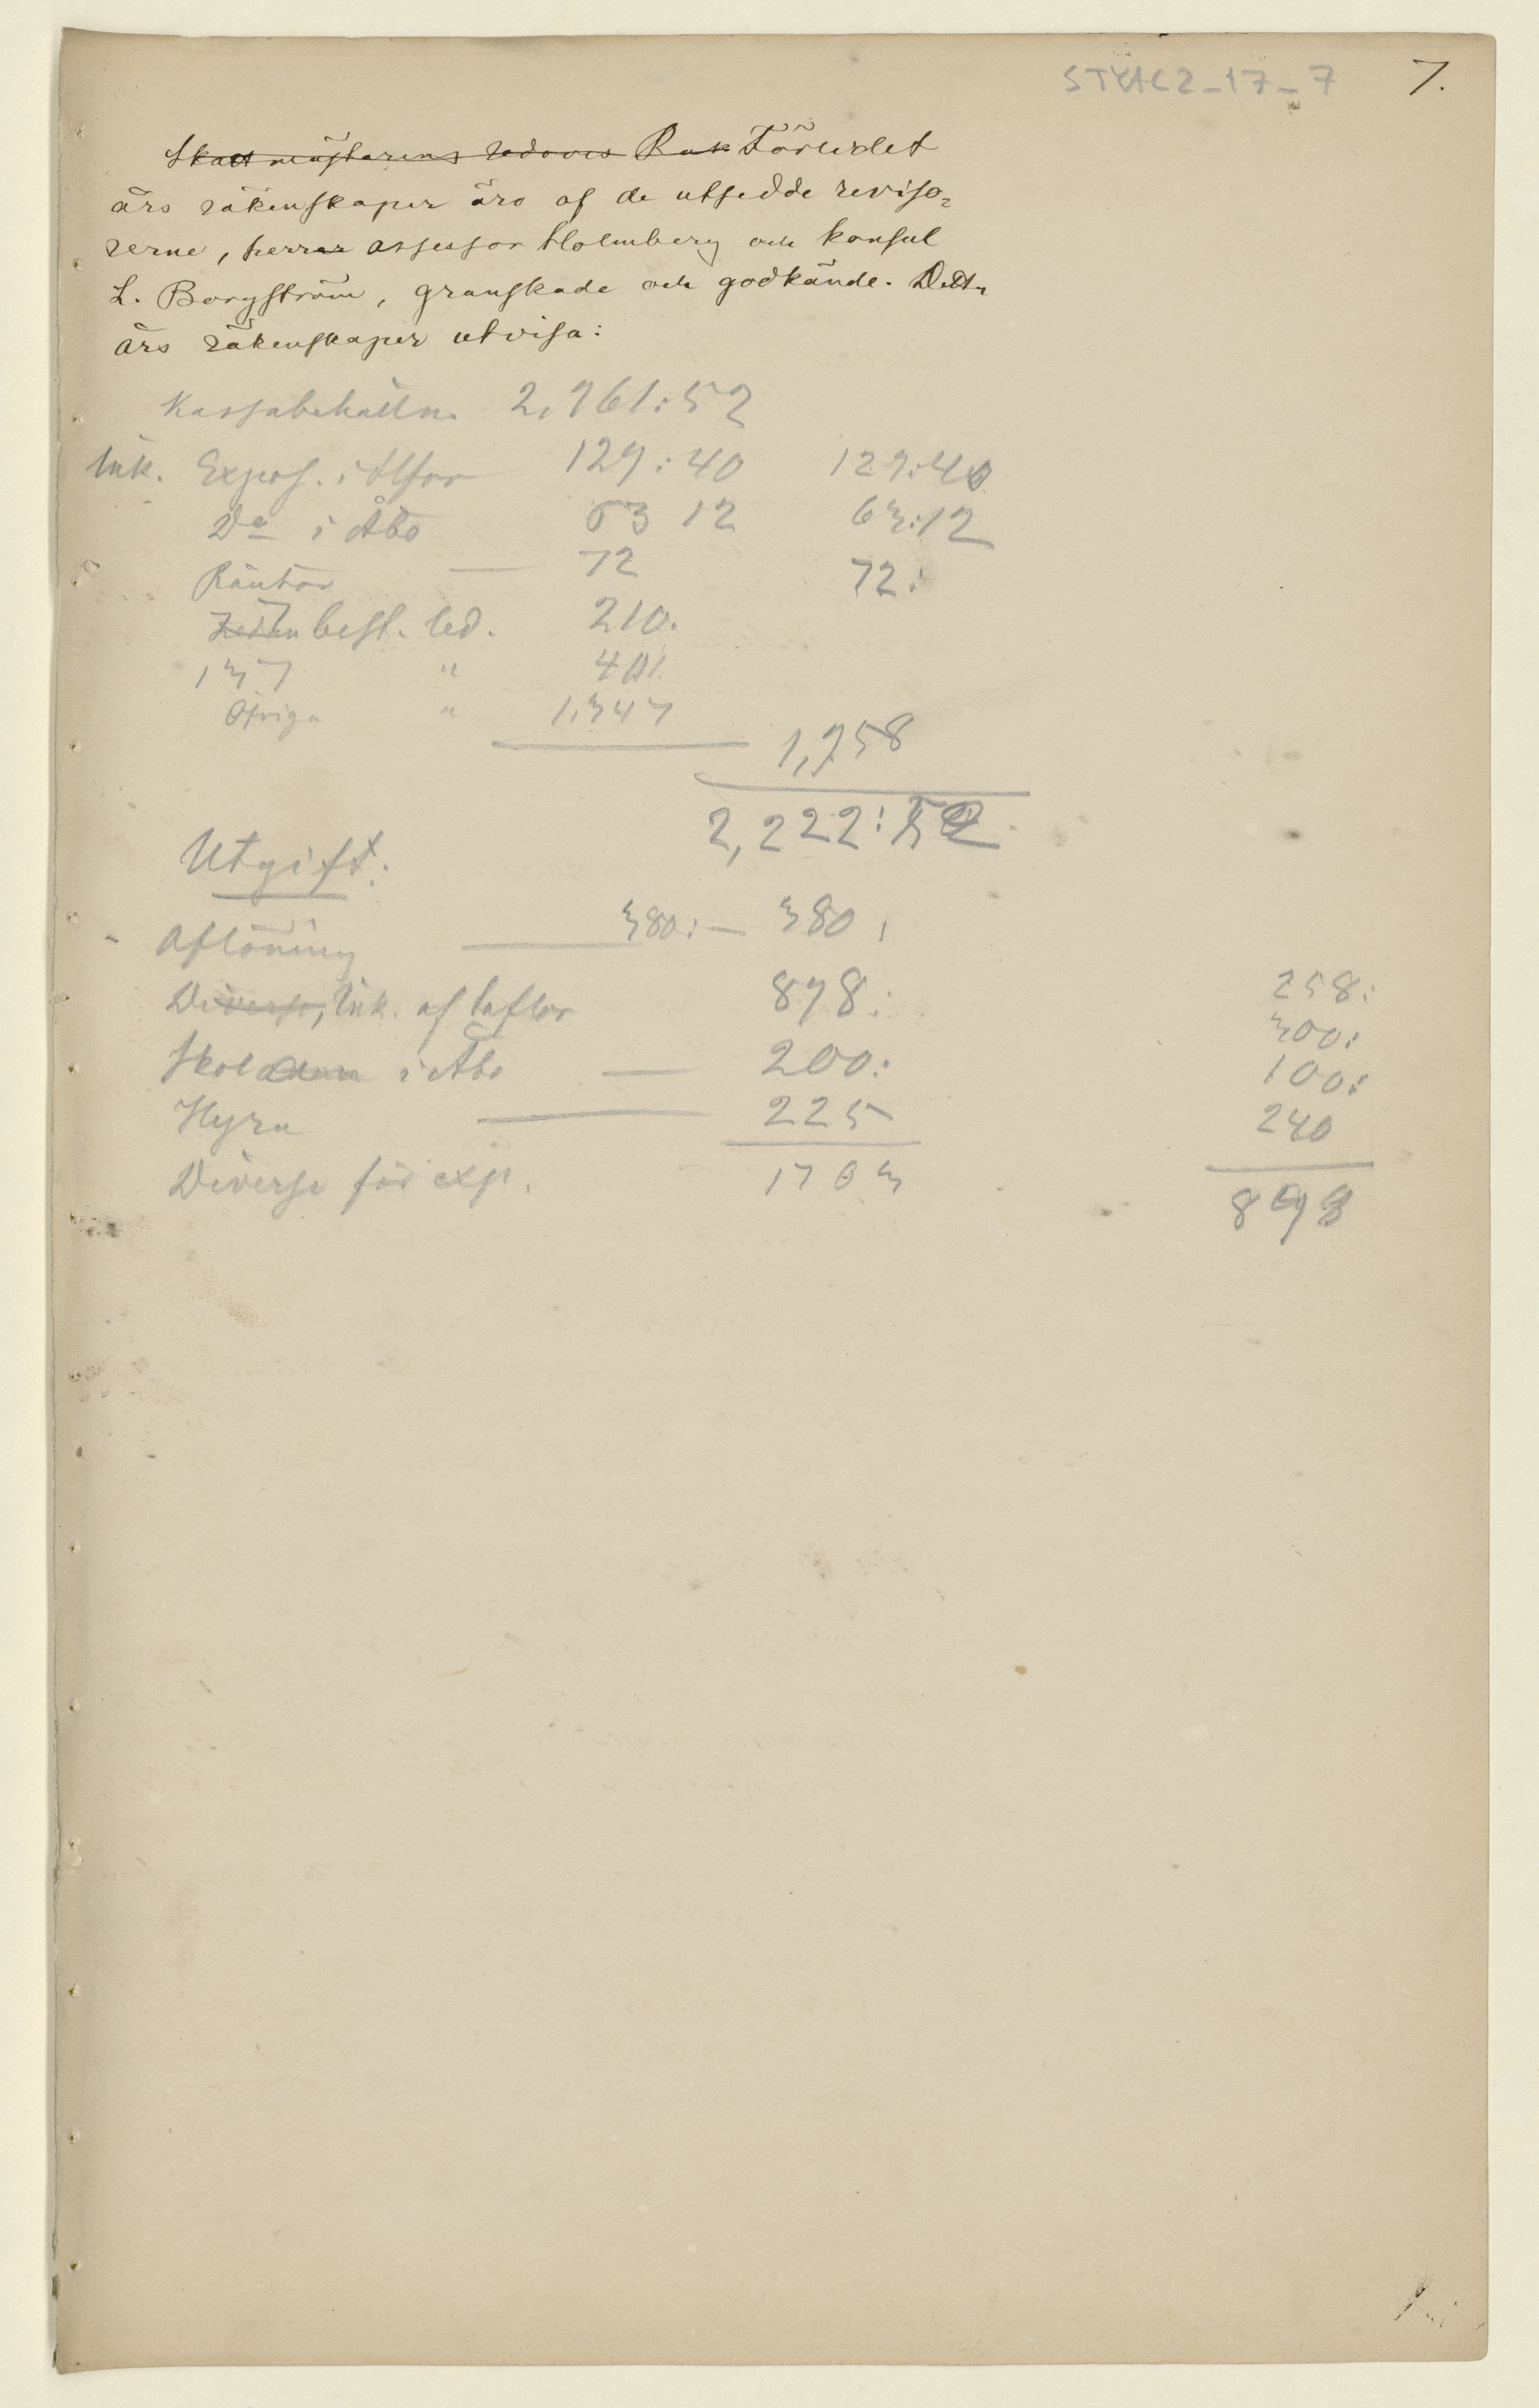 STYAC2_17_7 7.
Skattmästarens redovis Räk Förledet
års räkenskaper äro af de utsedde reviso=
rerne, herrar assessor Holmberg och konsul
L. Borgström, granskade och godkände. Detta
års räkenskaper utvisa:
Kassabehålln. 2,961:52
Ink. Expos. i Hfors 129:40 129:40
Do i Åbo 63 12 63:12
Räntor — 72 72:
best. led. 210.
137 " 401.
Öfriga " 1,347
1,958
2,222:52
Utgift:
Aflöning — 380:— 380:
Diverse, Ink. af taflor 898: 258:
300:
Skolan i Åbo — 200: 100:
Hyra — 225 240
Diverse för exp. 1703 898